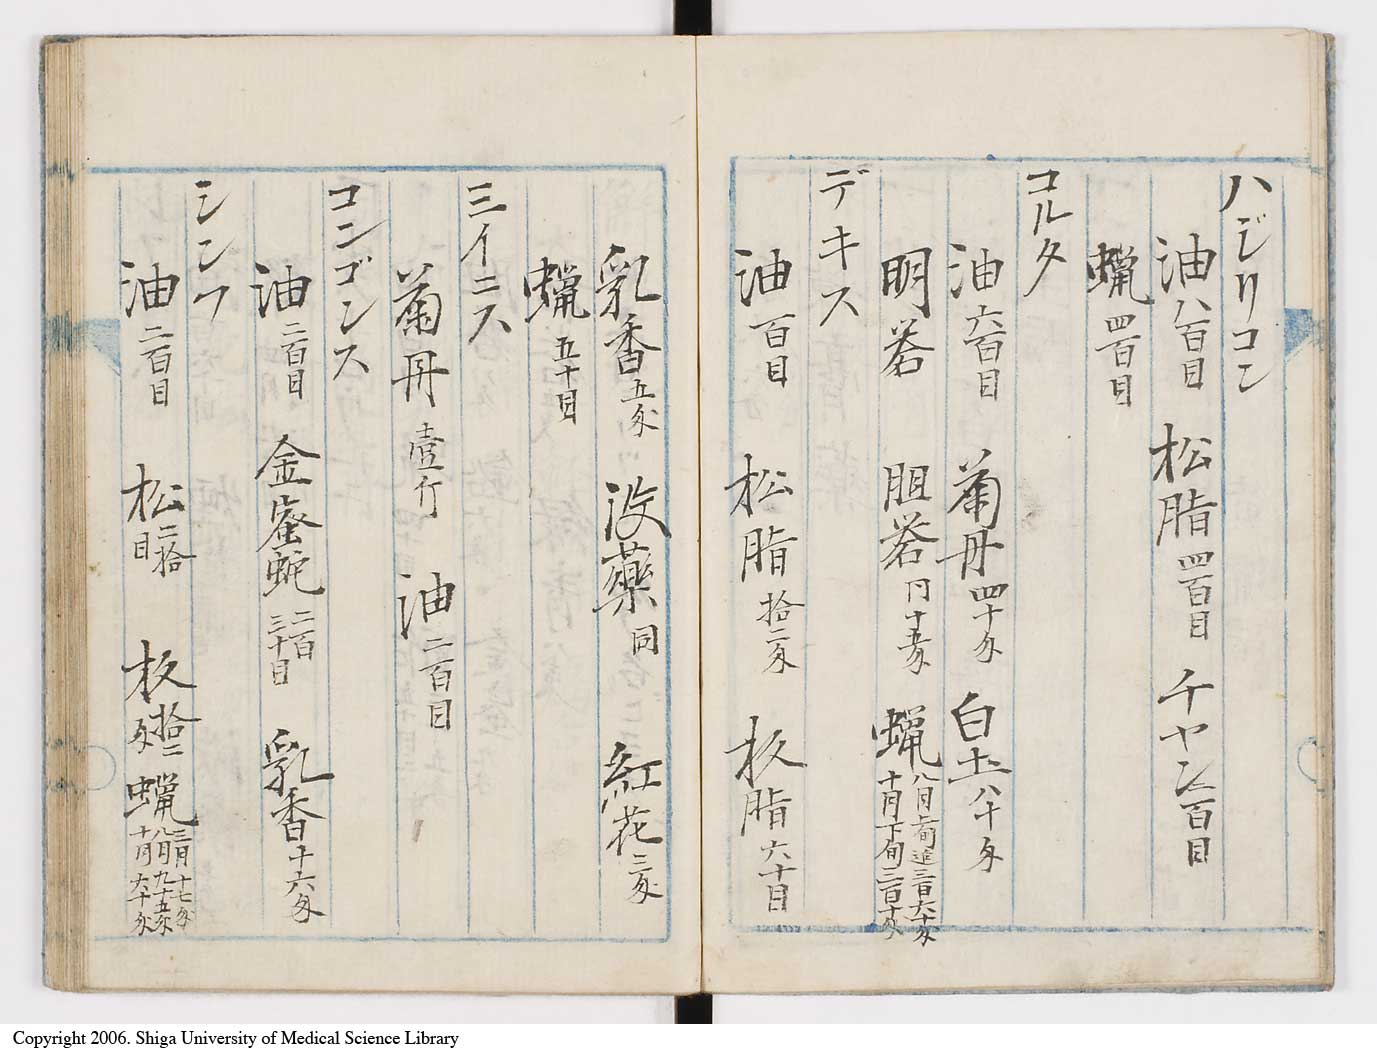 ハジリコン
油 八百目 松脂 四百目 チヤン 二百目
蝋 四百目
コルタ
油 六百目 蔔丹 四十匁 白土 八十匁
明荅 胆荅 蝋 八月上旬迄三百六十匁 十月下旬三百十匁
デキス
油 百目 松脂 拾二匁 板脂 六十目
乳香 五匁 没藥 同 紅花 三匁
蝋 五十目
ミイニス
蔔丹 壹斤 油 二百目
コンゴンス
油 二百目 金蜜蛇 二百三十目 乳香 十六匁
シンワ
油 二百目 松 二拾目 板 拾二匁 蝋 三月十七匁 八月九十五匁 十月六十匁
Copyright 2006. Shiga University of Medical Science Library